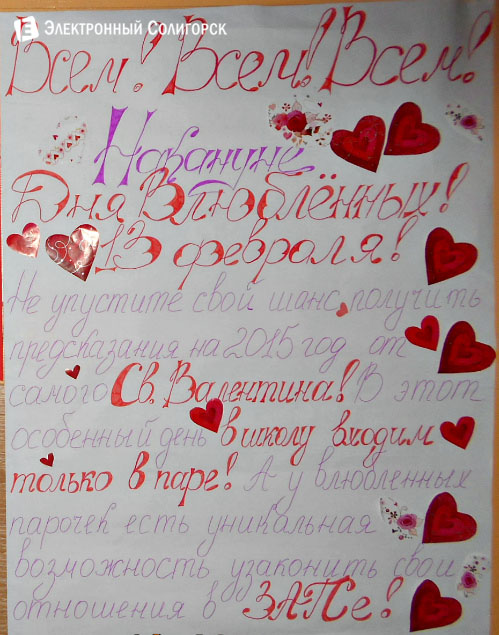 Электронный Солигорск
Всем! Всем! Всем!
Накануне
Дня Влюблённых!
13 февраля!
Не упустите свой шанс получить
предсказания на 2015 год от
самого Св. Валентина! В этот
особенный день в школу входим
только в паре! А у влюбленных
парочек есть уникальная
возможность узаконить свои
отношения в ЗАПСе!